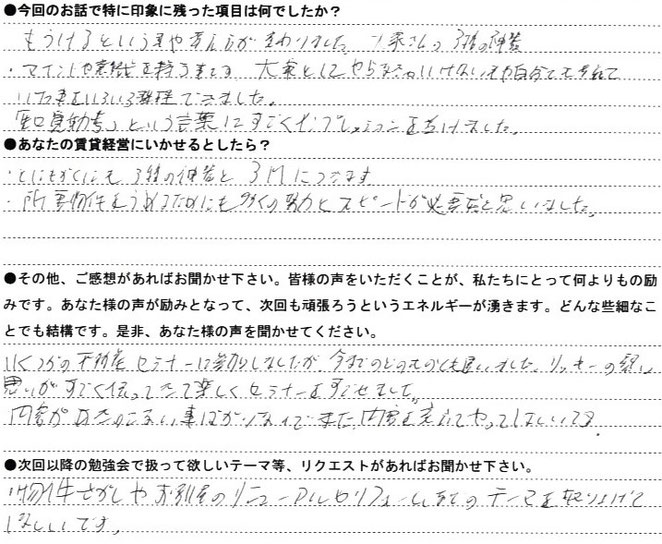 ●今回のお話で特に印象に残った項目は何でしたか?
もうけるという 考え方が 変わりました。 3種の神器
・マインドや意識を持つ事も 大家として やらなきゃいけない
いろいろ整理できました。
という言葉にすごく を受けました。
●あなたの賃貸経営にいかせるとしたら?
・とにもかくにも 3種の神器と 3Mにつきます
・所有物件をうめるためにも 多くの努力とスピードが必要だと思いました。
●その他、ご感想があればお聞かせ下さい。皆様の声をいただくことが、私たちにとって何よりもの励
みです。あなた様の声が励みとなって、次回も頑張ろうというエネルギーが湧きます。どんな些細なこ
とでも結構です。是非、あなた様の声を聞かせてください。
いくつかの不動産セミナーに参加しましたが 今までのどのものよりも良いました。 リッキーの熱い
思いがすごく伝ってきて楽しくセミナーをすごせました。
内容が 事ばかりなので また 内容を変えてやってほしいです。
●次回以降の勉強会で扱って欲しいテーマ等、リクエストがあればお聞かせ下さい。
物件さがしやお部屋のリニューアルやリフォーム のテーマを取り上げて
ほしいです。